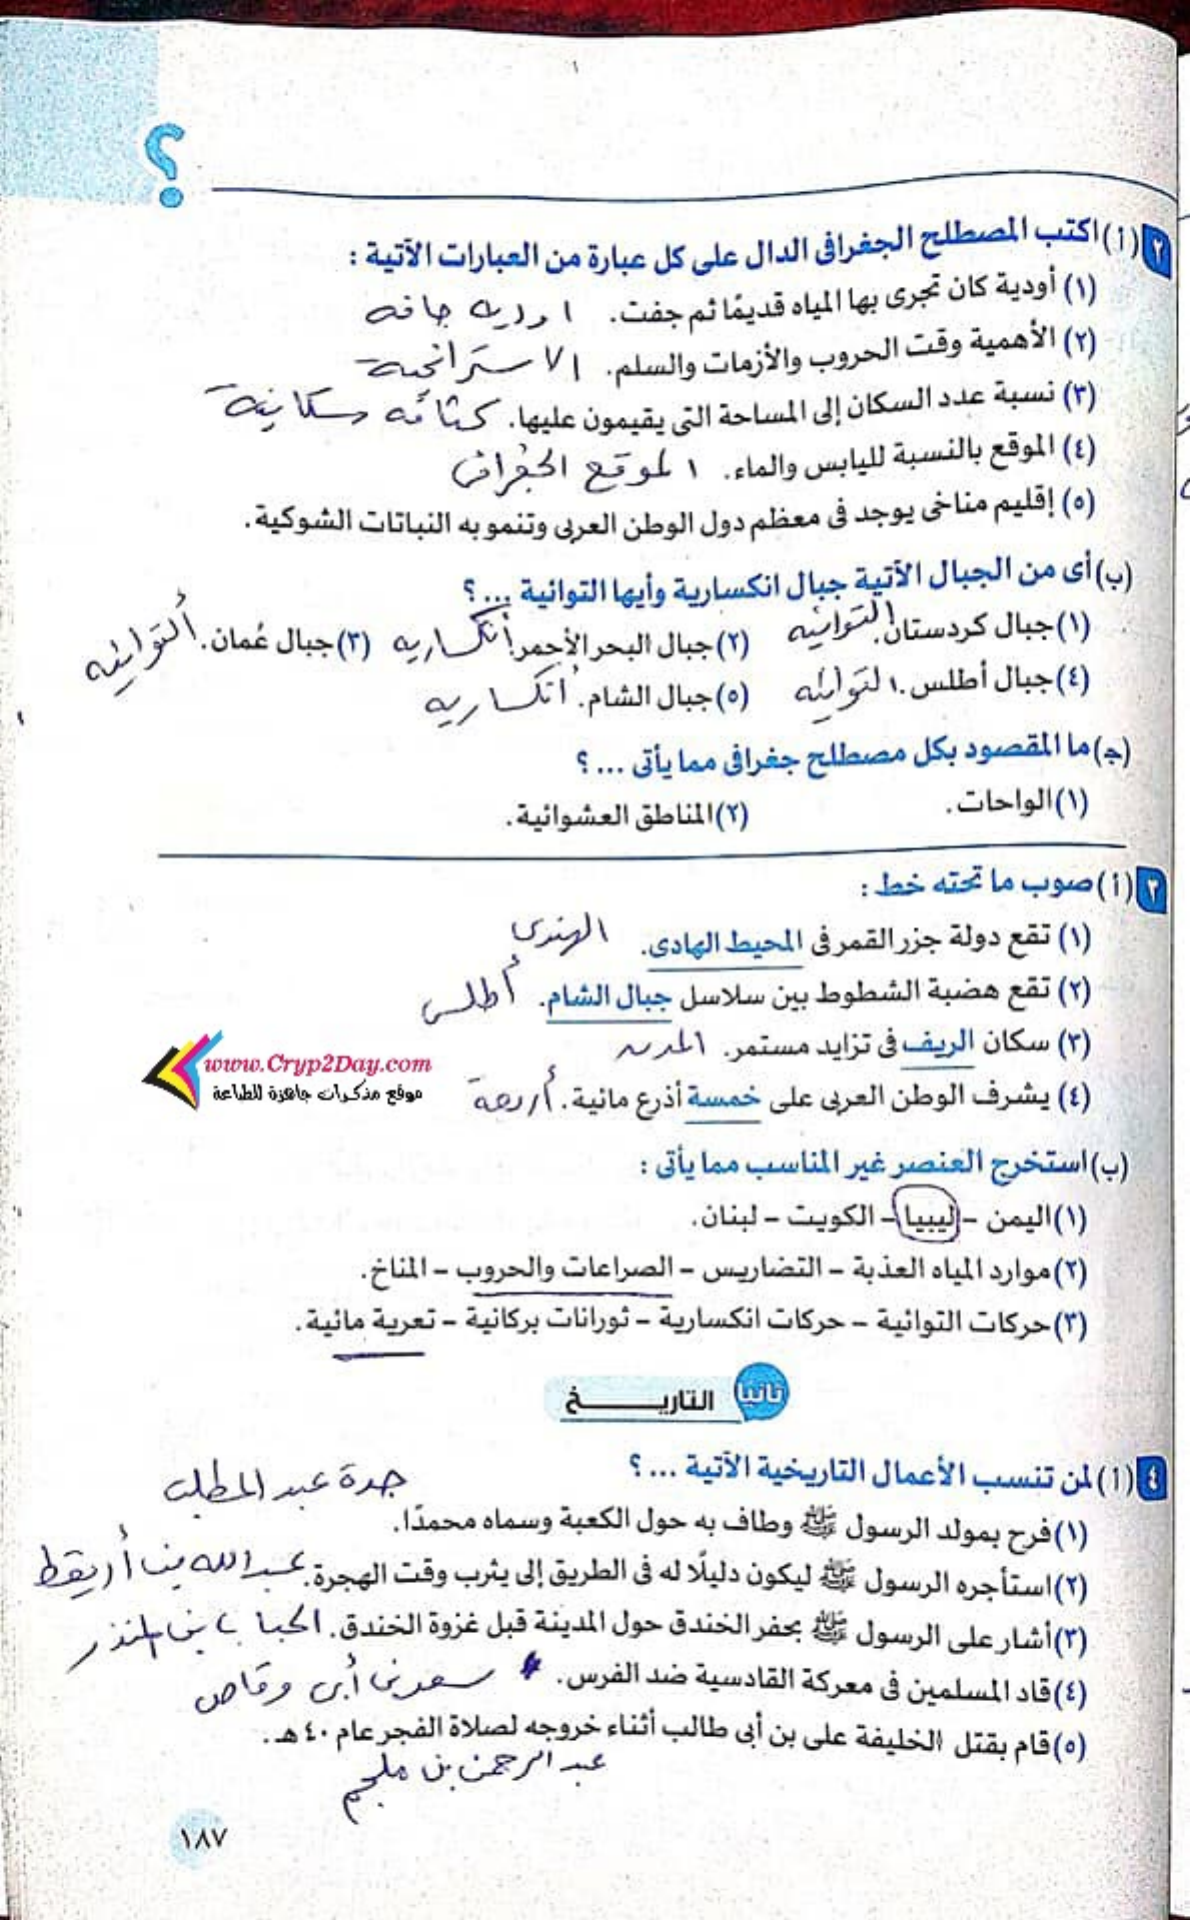 ؟
٢ (أ) اكتب المصطلح الجغرافى الدال على كل عبارة من العبارات الآتية :
(١) أودية كان تجرى بها المياه قديمًا ثم جفت. اودية جافه
(٢) الأهمية وقت الحروب والأزمات والسلم. الاستراتجية
(٣) نسبة عدد السكان إلى المساحة التى يقيمون عليها. كثافه سكانية
(٤) الموقع بالنسبة لليابس والماء. الموقع الجغرافى
(٥) إقليم مناخى يوجد فى معظم دول الوطن العربى وتنمو به النباتات الشوكية.
(ب) أى من الجبال الآتية جبال انكسارية وأيها التوائية ... ؟
(١) جبال كردستان. التوائيه (٢) جبال البحر الأحمر. أنكساريه (٣) جبال عُمان. ألتوائيه
(٤) جبال أطلس. التوائيه (٥) جبال الشام. أنكساريه
(ج) ما المقصود بكل مصطلح جغرافى مما يأتى ... ؟
(١) الواحات. (٢) المناطق العشوائية.
٣ (أ) صوب ما تحته خط :
(١) تقع دولة جزر القمر فى المحيط الهادى. الهندى
(٢) تقع هضبة الشطوط بين سلاسل جبال الشام. أطلس
(٣) سكان الريف فى تزايد مستمر. المدن
(٤) يشرف الوطن العربى على خمسة أذرع مائية. أربعة
www.Cryp2Day.com
موقع مذكرات جاهزة للطباعة
(ب) استخرج العنصر غير المناسب مما يأتى :
(١) اليمن – ليبيا – الكويت – لبنان.
(٢) موارد المياه العذبة – التضاريس – الصراعات والحروب – المناخ.
(٣) حركات التوائية – حركات انكسارية – ثورانات بركانية – تعرية مائية.
ثانيا التاريـــــخ
٤ (أ) لمن تنسب الأعمال التاريخية الآتية ... ؟
جدة عبد المطلب
(١) فرح بمولد الرسول ﷺ وطاف به حول الكعبة وسماه محمدًا.
(٢) استأجره الرسول ﷺ ليكون دليلًا له فى الطريق إلى يثرب وقت الهجرة. عبد الله بن أريقط
(٣) أشار على الرسول ﷺ بحفر الخندق حول المدينة قبل غزوة الخندق. الحباب بن المنذر
(٤) قاد المسلمين فى معركة القادسية ضد الفرس. سعد بن أبى وقاص
(٥) قام بقتل الخليفة على بن أبى طالب أثناء خروجه لصلاة الفجر عام ٤٠ هـ.
عبد الرحمن بن ملجم
١٨٧